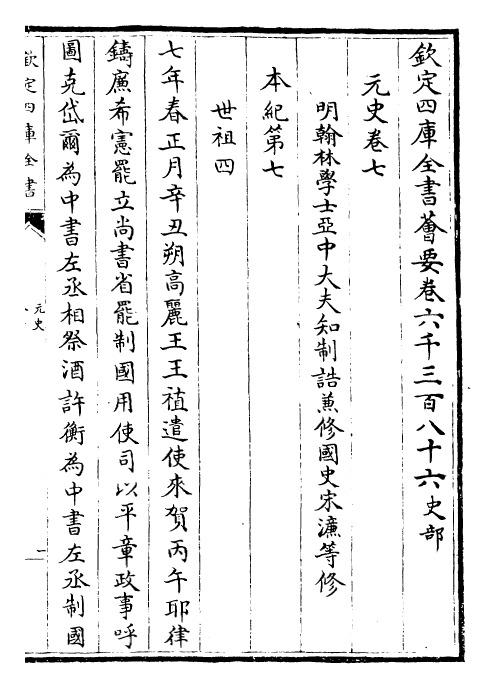 欽定四庫全書薈要卷六千三百八十六史部
元史卷七
明翰林學士亞中大夫知制誥兼修國史宋濂等修
本紀第七
世祖四
七年春正月辛丑朔高麗王王禃遣使來賀丙午耶律
鑄廉希憲罷立尚書省罷制國用使司以平章政事呼
圖克岱爾為中書左丞相祭酒許衡為中書左丞制國
欽定四庫全書
元史
一